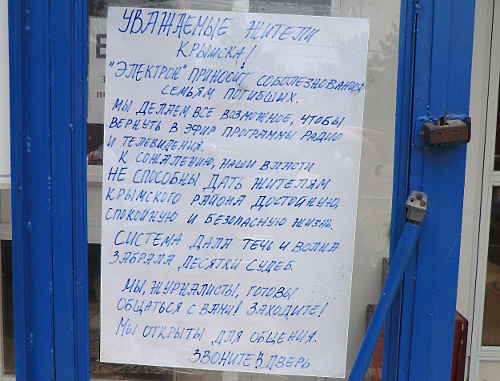 УВАЖАЕМЫЕ ЖИТЕЛИ
КРЫМСКА!
"ЭЛЕКТРОН" ПРИНОСИТ СОБОЛЕЗНОВАНИЯ
СЕМЬЯМ ПОГИБШИХ.
МЫ ДЕЛАЕМ ВСЕ ВОЗМОЖНОЕ, ЧТОБЫ
ВЕРНУТЬ В ЭФИР ПРОГРАММЫ РАДИО
И ТЕЛЕВИДЕНИЯ.
К СОЖАЛЕНИЮ, НАШИ ВЛАСТИ
НЕ СПОСОБНЫ ДАТЬ ЖИТЕЛЯМ
КРЫМСКОГО РАЙОНА ДОСТОЙНУЮ,
СПОКОЙНУЮ И БЕЗОПАСНУЮ ЖИЗНЬ.
СИСТЕМА ДАЛА ТЕЧЬ И ВОЛНА
ЗАБРАЛА ДЕСЯТКИ СУДЕБ.
МЫ, ЖУРНАЛИСТЫ, ГОТОВЫ
ОБЩАТЬСЯ С ВАМИ! ЗАХОДИТЕ!
МЫ ОТКРЫТЫ ДЛЯ ОБЩЕНИЯ.
ЗВОНИТЕ В ДВЕРЬ